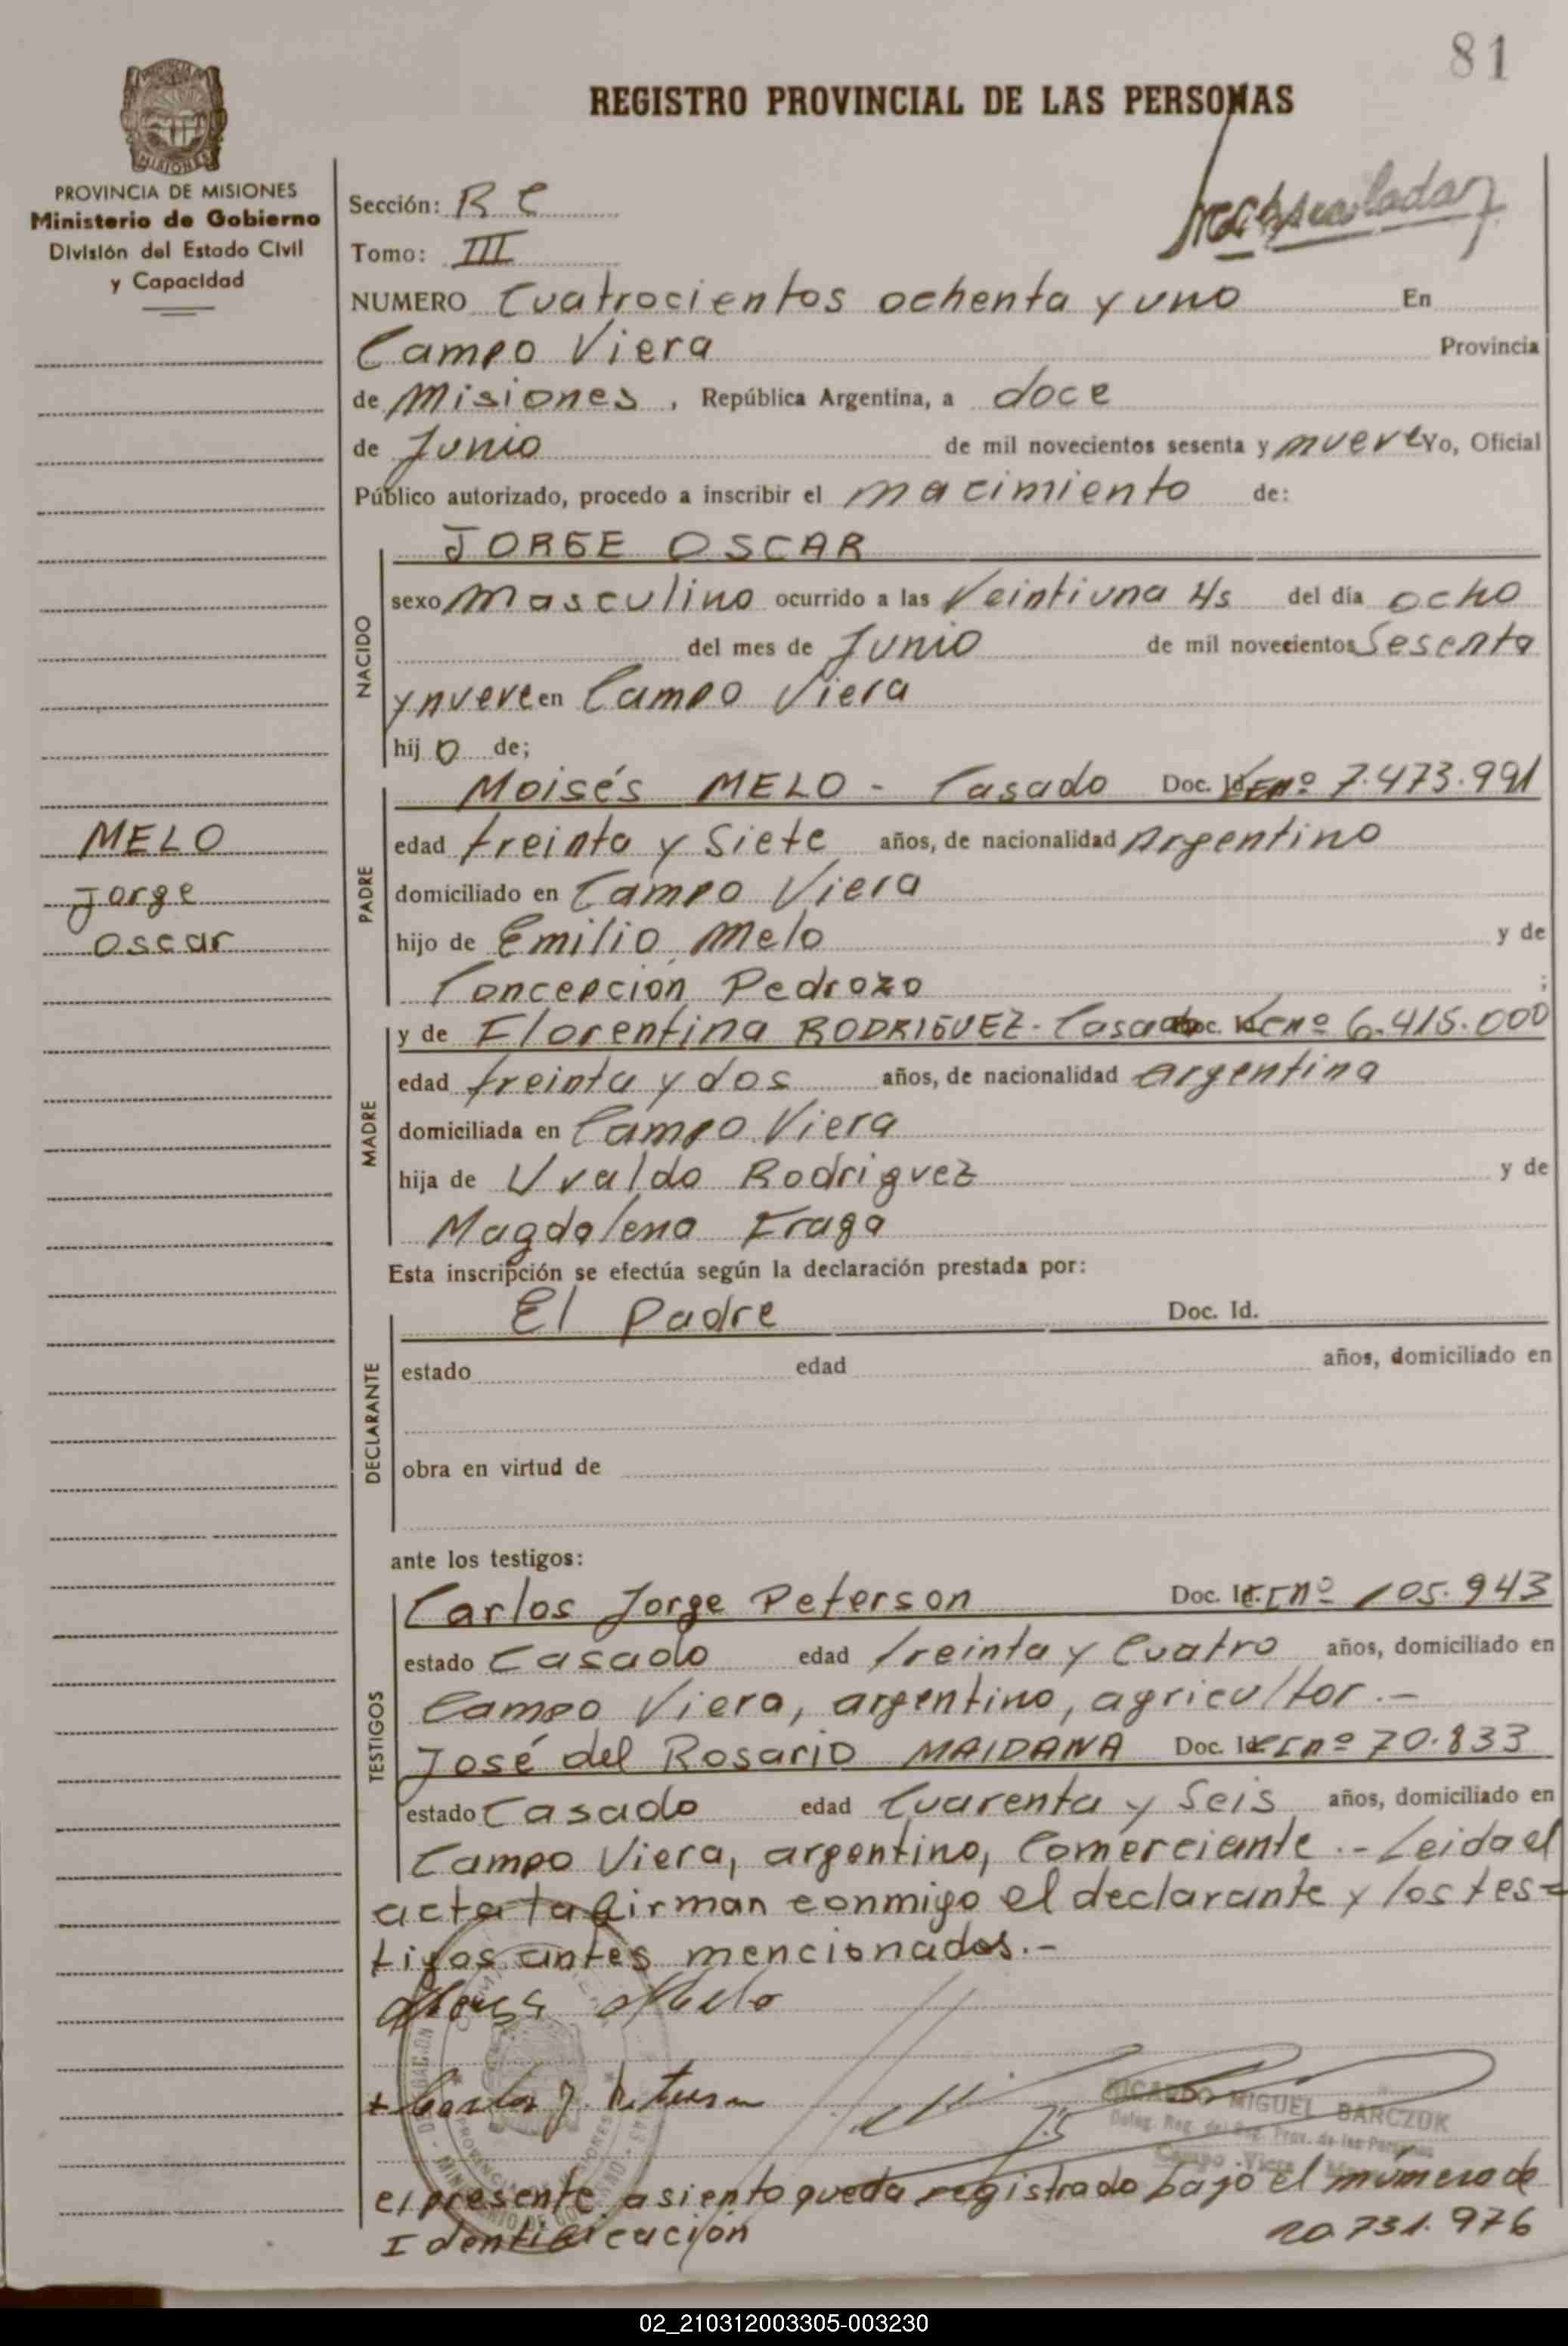 81
REGISTRO PROVINCIAL DE LAS PERSONAS
MISIONES
PROVINCIA DE MISIONES
Ministerio de Gobierno
División del Estado Civil
y Capacidad
MELO
Jorge
Oscar
Sección: R C
Tomo: III
NUMERO Cuatrocientos ochenta y uno En
Campo Viera Provincia
de Misiones, República Argentina, a doce
de Junio de mil novecientos sesenta y nueve Yo, Oficial
Público autorizado, procedo a inscribir el nacimiento de:
NACIDO
JORGE OSCAR
sexo Masculino ocurrido a las Veintiuna Hs del día ocho
del mes de Junio de mil novecientos Sesenta
y nueve en Campo Viera
hijo de;
PADRE
Moisés MELO - Casado Doc. Id. nº 7.473.991
edad treinta y Siete años, de nacionalidad Argentino
domiciliado en Campo Viera
hijo de Emilio Melo y de
Concepción Pedrozo ;
MADRE
y de Florentina RODRIGUEZ - Casada Doc. Id. nº 6.415.000
edad treinta y dos años, de nacionalidad argentina
domiciliada en Campo Viera
hija de Uvaldo Rodriguez y de
Magdalena Fraga
Esta inscripción se efectúa según la declaración prestada por:
DECLARANTE
El Padre Doc. Id.
estado edad años, domiciliado en
obra en virtud de
ante los testigos:
TESTIGOS
Carlos Jorge Peterson Doc. Id. CI nº 105.943
estado Casado edad treinta y Cuatro años, domiciliado en
Campo Viera, argentino, agricultor.-
José del Rosario MAIDANA Doc. Id. CI nº 70.833
estado Casado edad Cuarenta y Seis años, domiciliado en
Campo Viera, argentino, Comerciante.- Leida el
acta la firman conmigo el declarante y los tes=
tigos antes mencionados.-
RICARDO MIGUEL BARCZUK
Deleg. Reg. del Reg. Prov. de las Personas
Campo Viera
el presente asiento queda registrado bajo el número de
Identificación 20.731.976
02_210312003305-003230